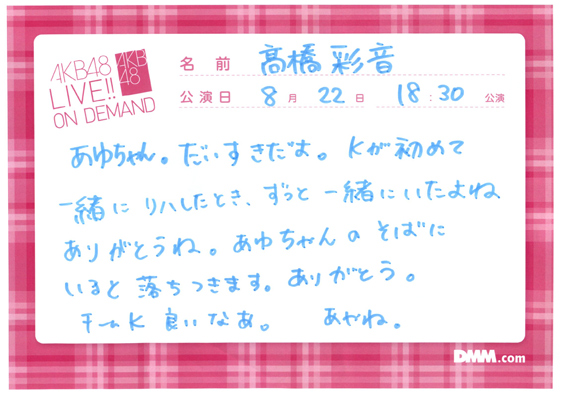 AKB48
LIVE!!
ON DEMAND
AKB
48
名前 髙橋彩音
公演日 8月22日 18:30公演
あゆちゃん。だいすきだよ。Kが初めて
一緒にリハしたとき、ずっと一緒にいたよね
ありがとうね。あゆちゃんのそばに
いると落ちつきます。ありがとう。
チームK 良いなあ。 あやね。
DMM.com